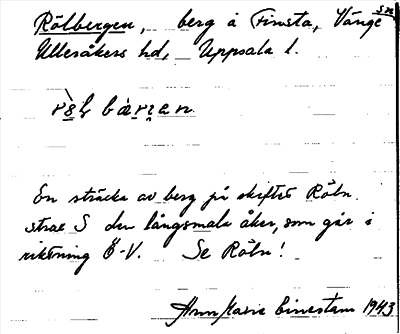 Rölbergen, berg å Finsta, Vänge sn
Ulleråkers hd, Uppsala l.
En sträcka av berg på skiftet Röln
strax S den långsmala åker, som går i
riktning Ö-V. Se Röln!
Ann Marie Einestam 1943